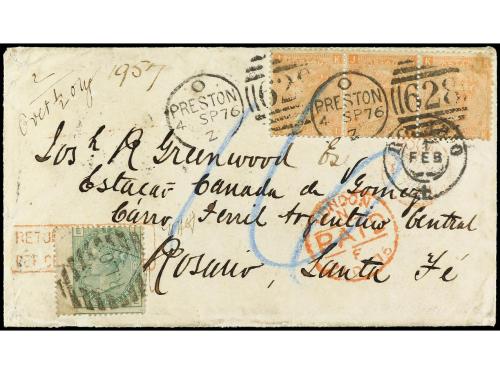 2
Over ½ oz
1957
O
PRESTON
4 SP 76
Z
628
O
PRESTON
4 SP 76
Z
628
K
J
K
ROSARIO
FEB
Josh R Greenwood Esq
Estaçao Canada de Gomez
Carro Ferril Argentino Central
Rosario, Santa Fé
LONDON
PAID
RETU
E